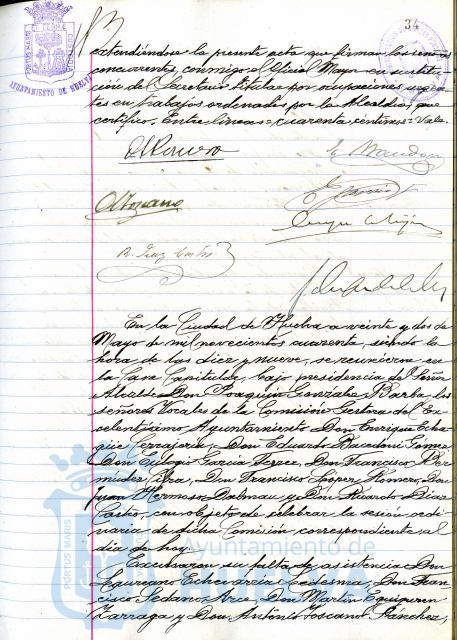 34
AYUNTAMIENTO DE HUELVA
extendiéndose la presente acta que firman los señores
concurrentes, conmigo el Oficial Mayor en sustitu-
ción del Secretario titular por ocupaciones urgen-
tes en trabajos ordenados por la Alcaldía, que
certifico. Entre líneas = cuarenta céntimos = Vale.
En la Ciudad de Huelva a veinte y dos de
Mayo de mil novecientos cuarenta, siendo la
hora de las diez y nueve, se reunieron en
la Casa Capitular, bajo presidencia del Señor
Alcalde Don Joaquín González Barba, los
señores Vocales de la Comisión Gestora del Ex-
celentísimo Ayuntamiento Don Enrique Echa-
güe Don Eduardo Gómez,
Don Eulogio García Don Francisco Ber-
múdez Don Francisco López Romero, Don
Juan Hermoso Dalmau y Don Ricardo Díaz
Castro, con objeto de celebrar la sesión ordi-
naria de dicha Comisión, correspondiente al
día de hoy.
Excusaron su falta de asistencia Don
Echevarría Ledesma, Don Fran-
cisco Sedano Arce, Don Martín Eguiguren
Zarraga y Don Antonio Toscano Sánchez,
PORTUS MARIS
Ayuntamiento de
HUELVA